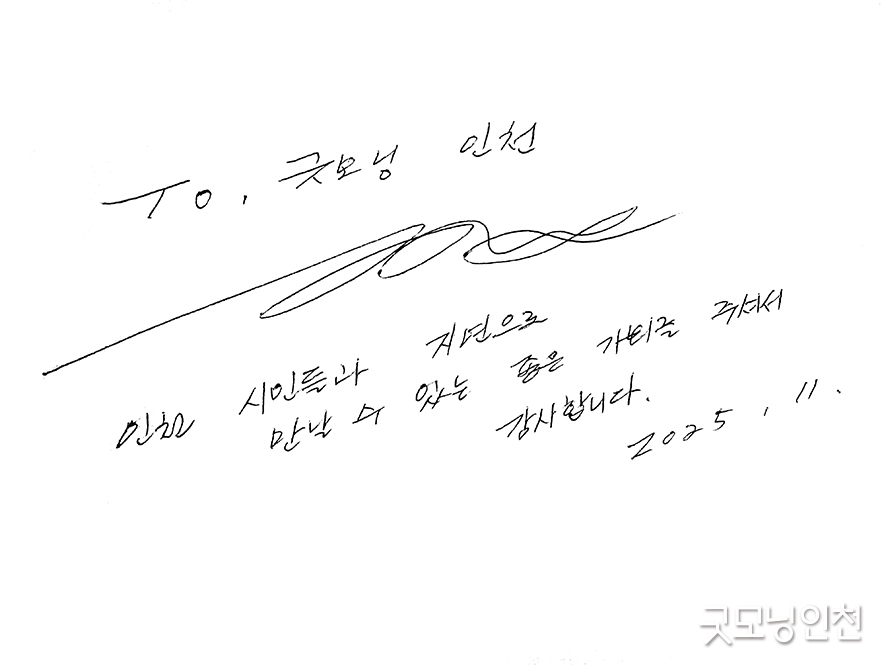 To, 굿모닝 인천
인천 시민들과 지면으로
만날 수 있는 좋은 기회를 주셔서
감사합니다.
2025, 11.
굿모닝인천